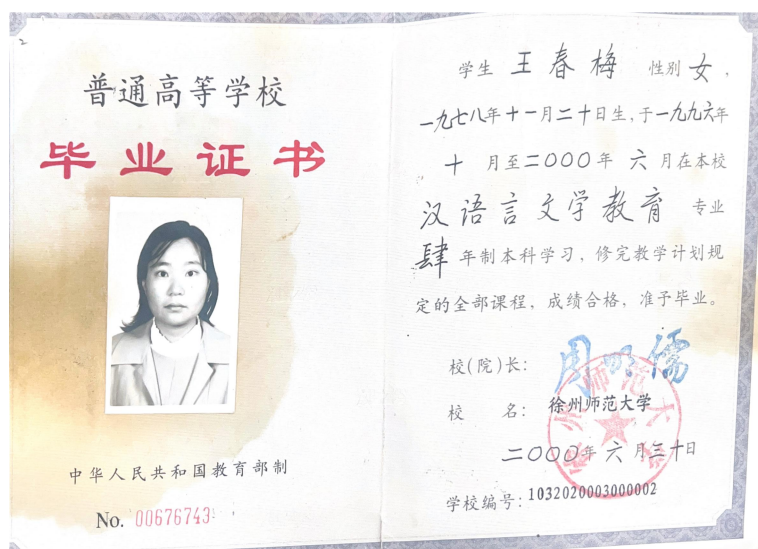 2
普通高等学校
毕业证书
中华人民共和国教育部制
No. 00676743
学生 王春梅 性别 女，
一九七八年十一月二十日生，于一九九六年
十 月至二〇〇〇年 六 月在本校
汉语言文学教育 专业
肆 年制本科学习，修完教学计划规
定的全部课程，成绩合格，准予毕业。
校(院)长：周明儒
校 名：徐州师范大学
二〇〇〇年 六 月三十日
学校编号：1032020003000002